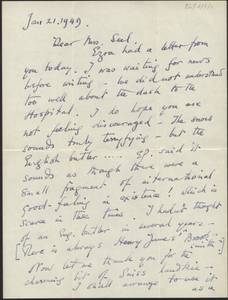 Jan 21. 1949.
Dear Miss
Ezra had a letter from
you today. I was waiting for news
before writing - we did not understand
too well about the dash to the
Hospital. I do hope you are
not feeling discouraged. The snow
sounds truly terrifying - but the
English butler .... EP. said it
sounds as though there were a
small fragment of international
Good-feeling in existence! which is
scarce in these times. I hadn't thought
of an Eng. butler in several years -
[There is always Henry James' Book
Now let me thank you for the
charming bit of Swiss
I shall arrange to use it
as a